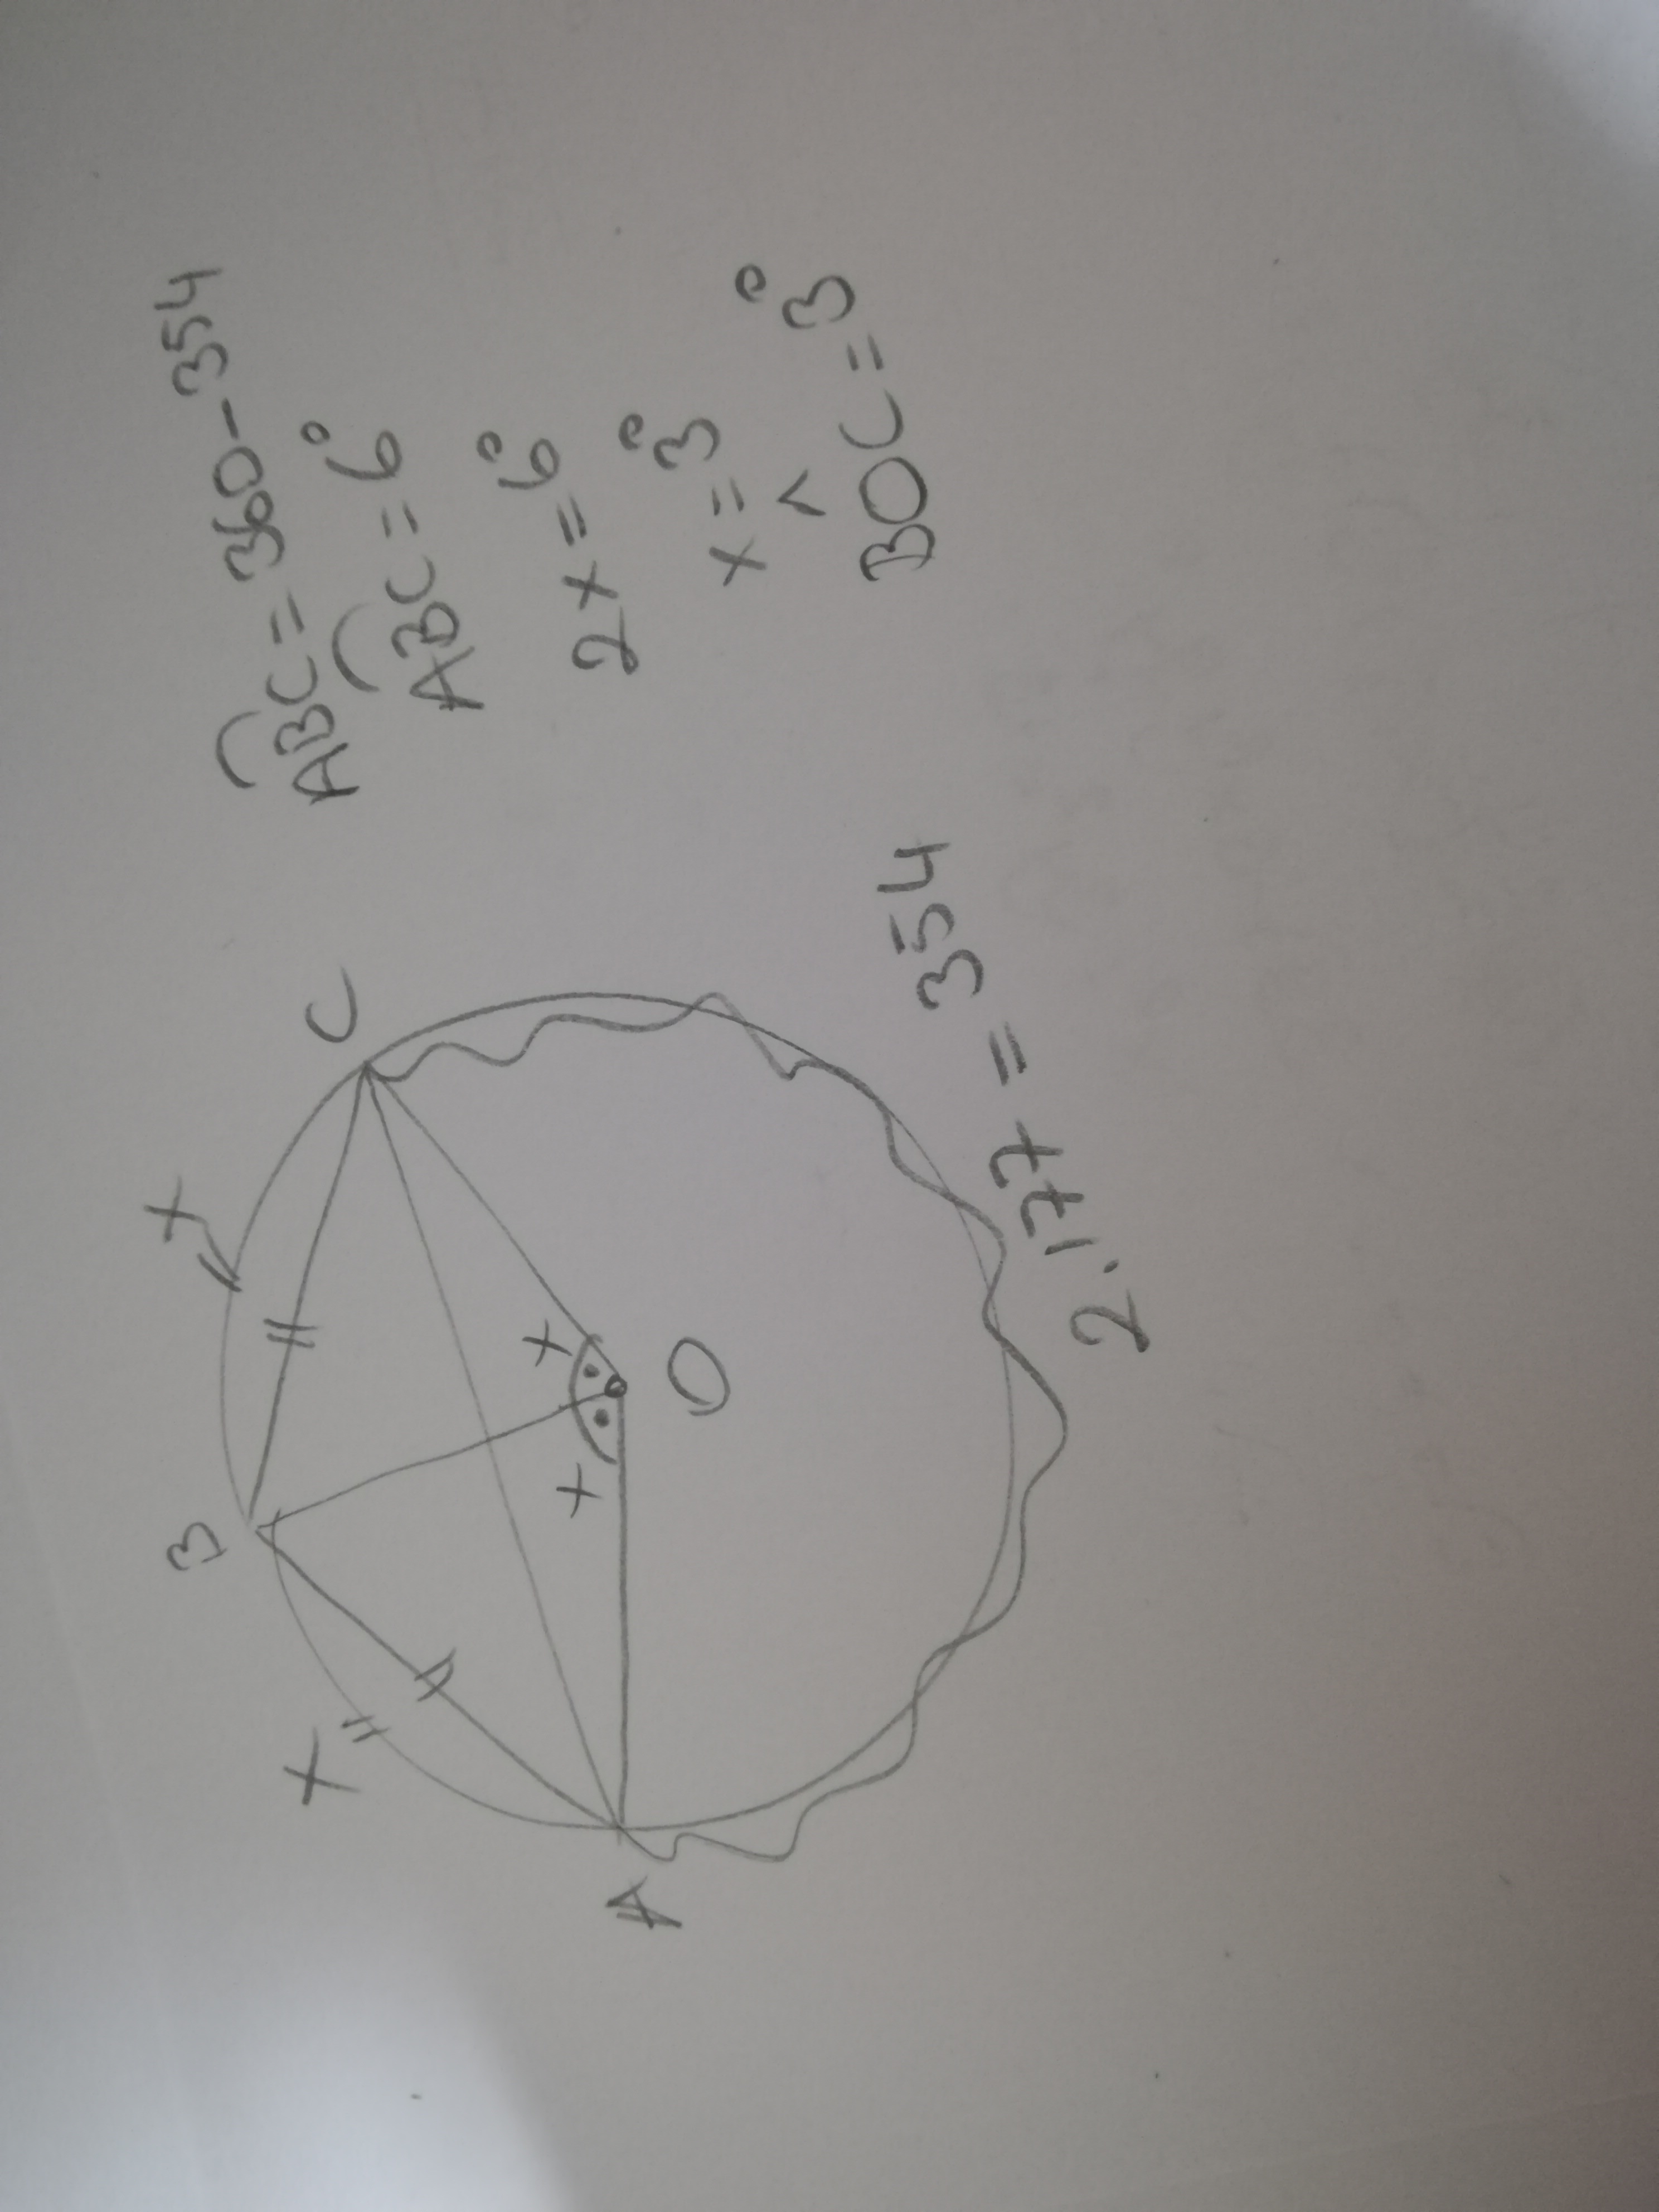 ABC = 360 - 354
ABC = 6°
2x = 6°
x = 3°
BOC = 3°
B
C
A
O
x
x
x
x
2.177 = 354